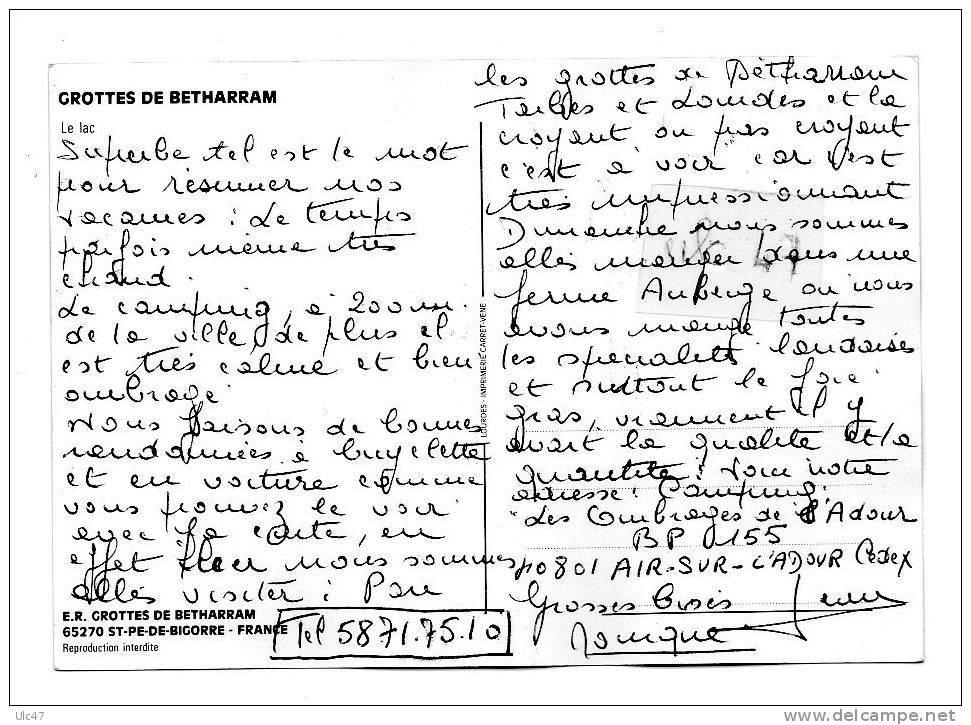 GROTTES DE BETHARRAM
Le lac
Superbe tel est le mot
pour résumer nos
vacances : Le temps
parfois même très
chaud.
Le camping, à 200 m.
de la ville, de plus il
est très calme et bien
ombragé
Nous faisons de bonnes
randonnées à bicyclette
et en voiture comme
vous pouvez le voir
avec la carte, en
effet nous sommes
allés visiter : Pau
E.R. GROTTES DE BETHARRAM
65270 ST-PE-DE-BIGORRE - FRANCE
Reproduction interdite
Tel 5871.75.10
LOURDES - IMPRIMERIE CARRET-VENE
les grottes de Bétharram
Tarbes et Lourdes et là
croyant ou pas croyant
c'est à voir car c'est
très impressionnant
Dimanche nous sommes
allés manger dans une
ferme Auberge où nous
avons mangé toutes
les spécialités landaises
et surtout le foie
gras, vraiment il y
avait la qualité et la
quantité. Voici notre
adresse : Camping.
"Les Ombrages de l'Adour
BP 155
40801 AIR-SUR-L'ADOUR Cedex
Grosses bises Jean
Monique
47
Ulc47
delcampe.net